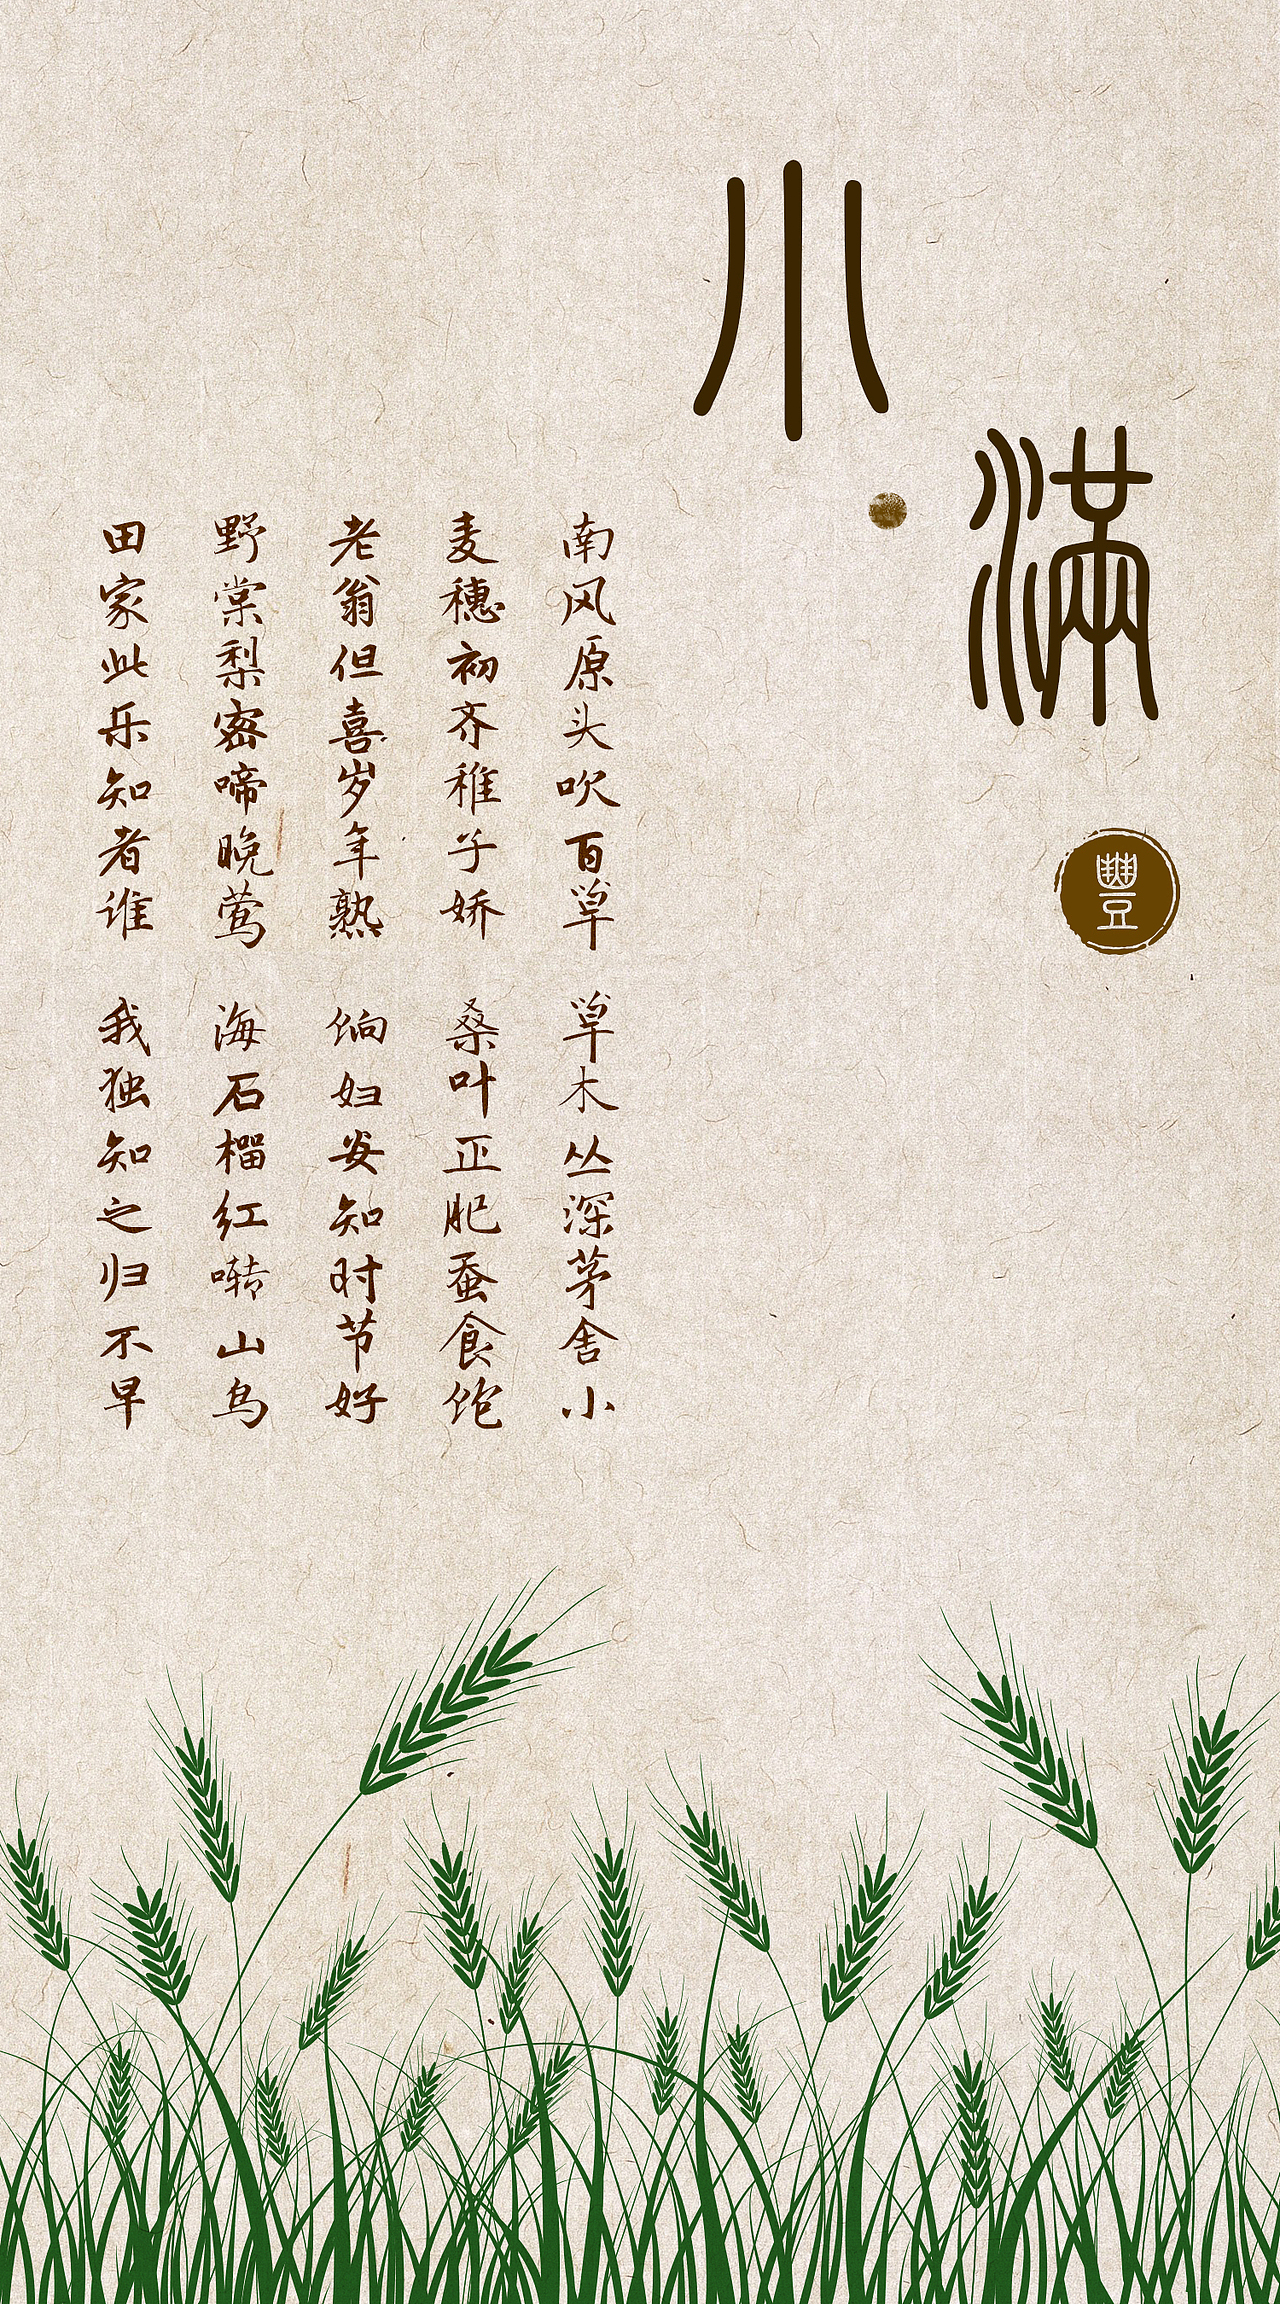 小满
豐
南风原头吹百草 草木丛深茅舍小
麦穗初齐稚子娇 桑叶正肥蚕食饱
老翁但喜岁年熟 饷妇安知时节好
野棠梨密啼晚莺 海石榴红啭山鸟
田家此乐知者谁 我独知之归不早